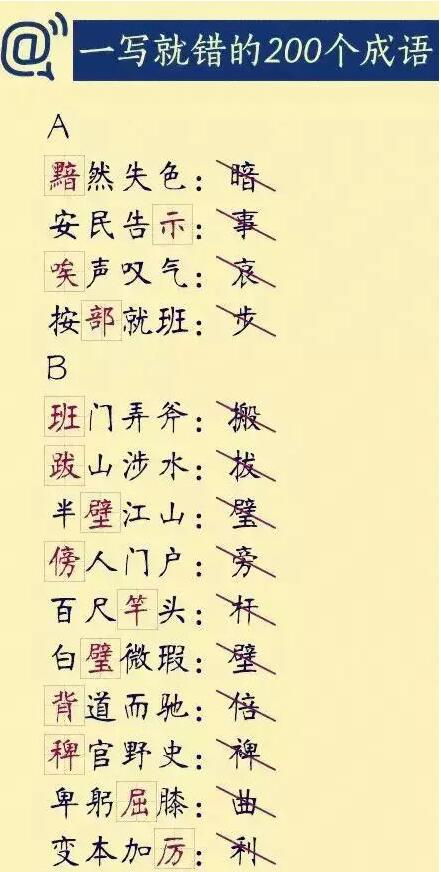 @ 一写就错的200个成语
A
黯然失色：暗
安民告示：事
唉声叹气：哀
按部就班：步
B
班门弄斧：搬
跋山涉水：拔
半壁江山：璧
傍人门户：旁
百尺竿头：杆
白璧微瑕：壁
背道而驰：倍
稗官野史：裨
卑躬屈膝：曲
变本加厉：利